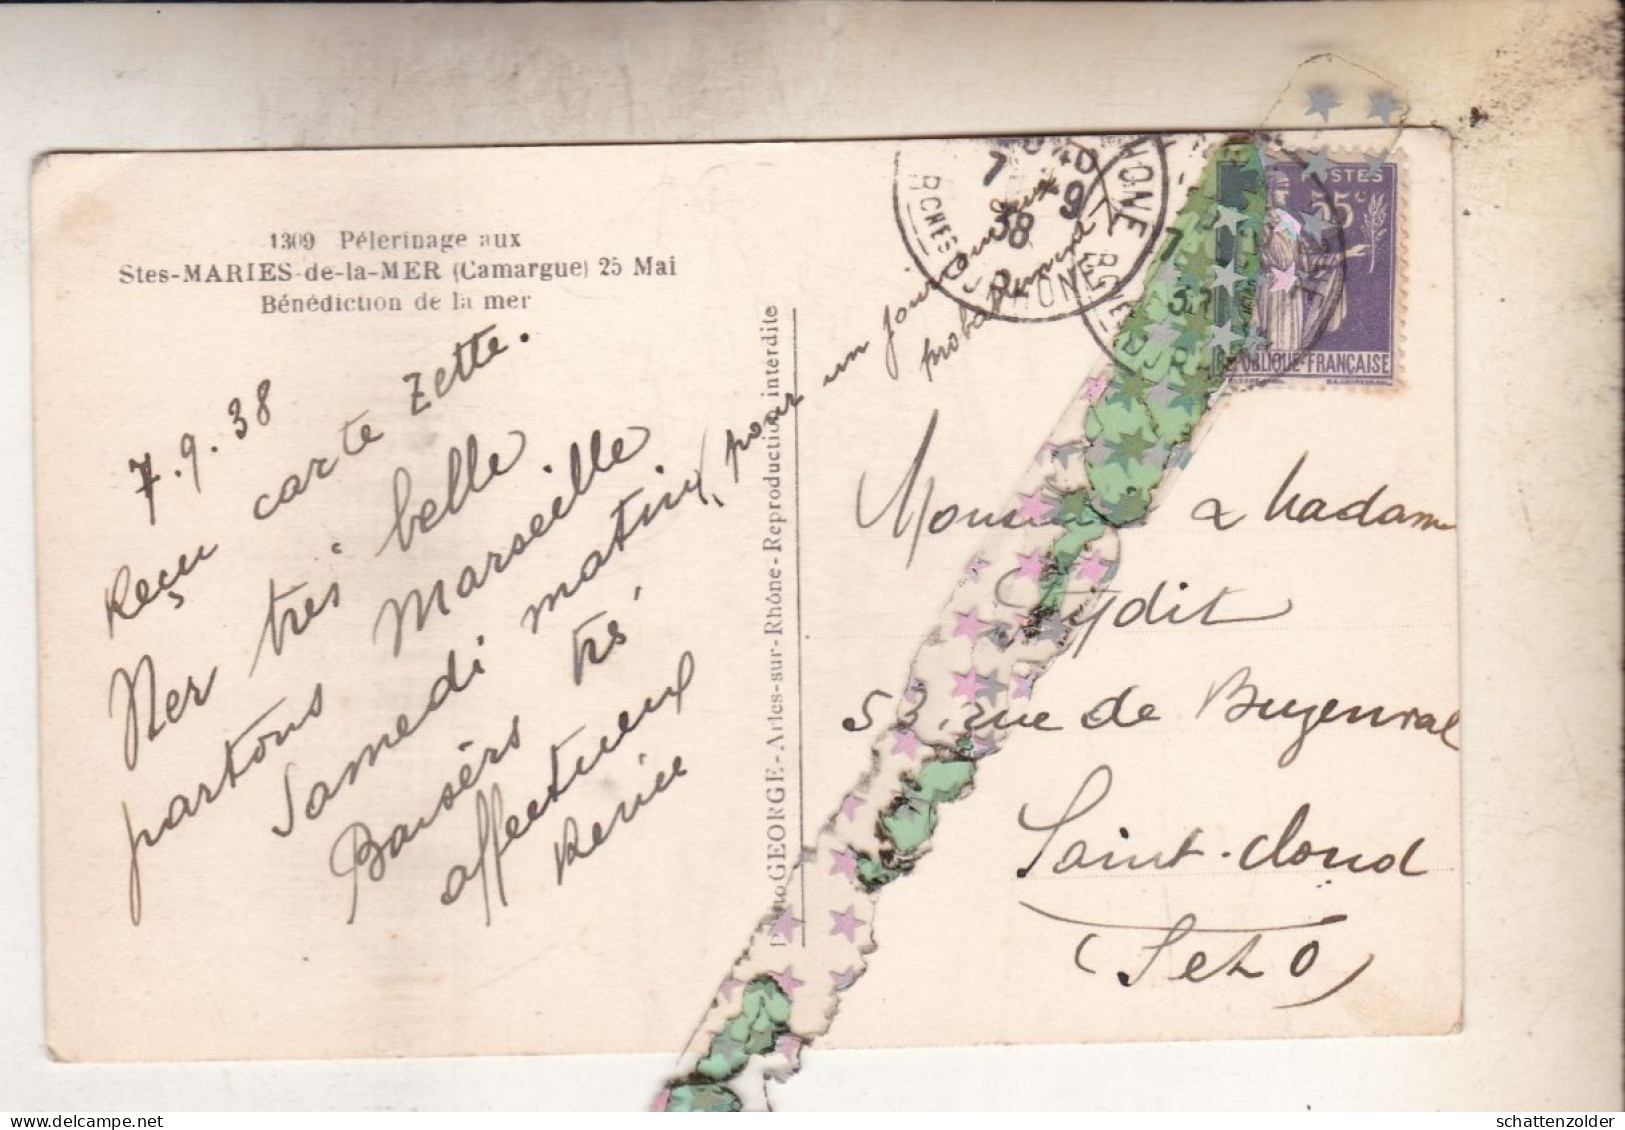 1309 Pélerinage aux
Stes-MARIES-de-la-MER (Camargue) 25 Mai
Bénédiction de la mer
7.9.38
Reçu carte Zette.
Mer très belle
partons Marseille
Samedi matin, pour un jour ou deux
probablement
Baisers très
affectueux
Photo GEORGE-Arles-sur-Rhône-Reproduction interdite
7 -9
38
RHONE
POSTES
55c
REPUBLIQUE-FRANÇAISE
Monsieur & Madame
53, rue de Buzenval
Saint-Cloud
(S et O)
schattenzolder